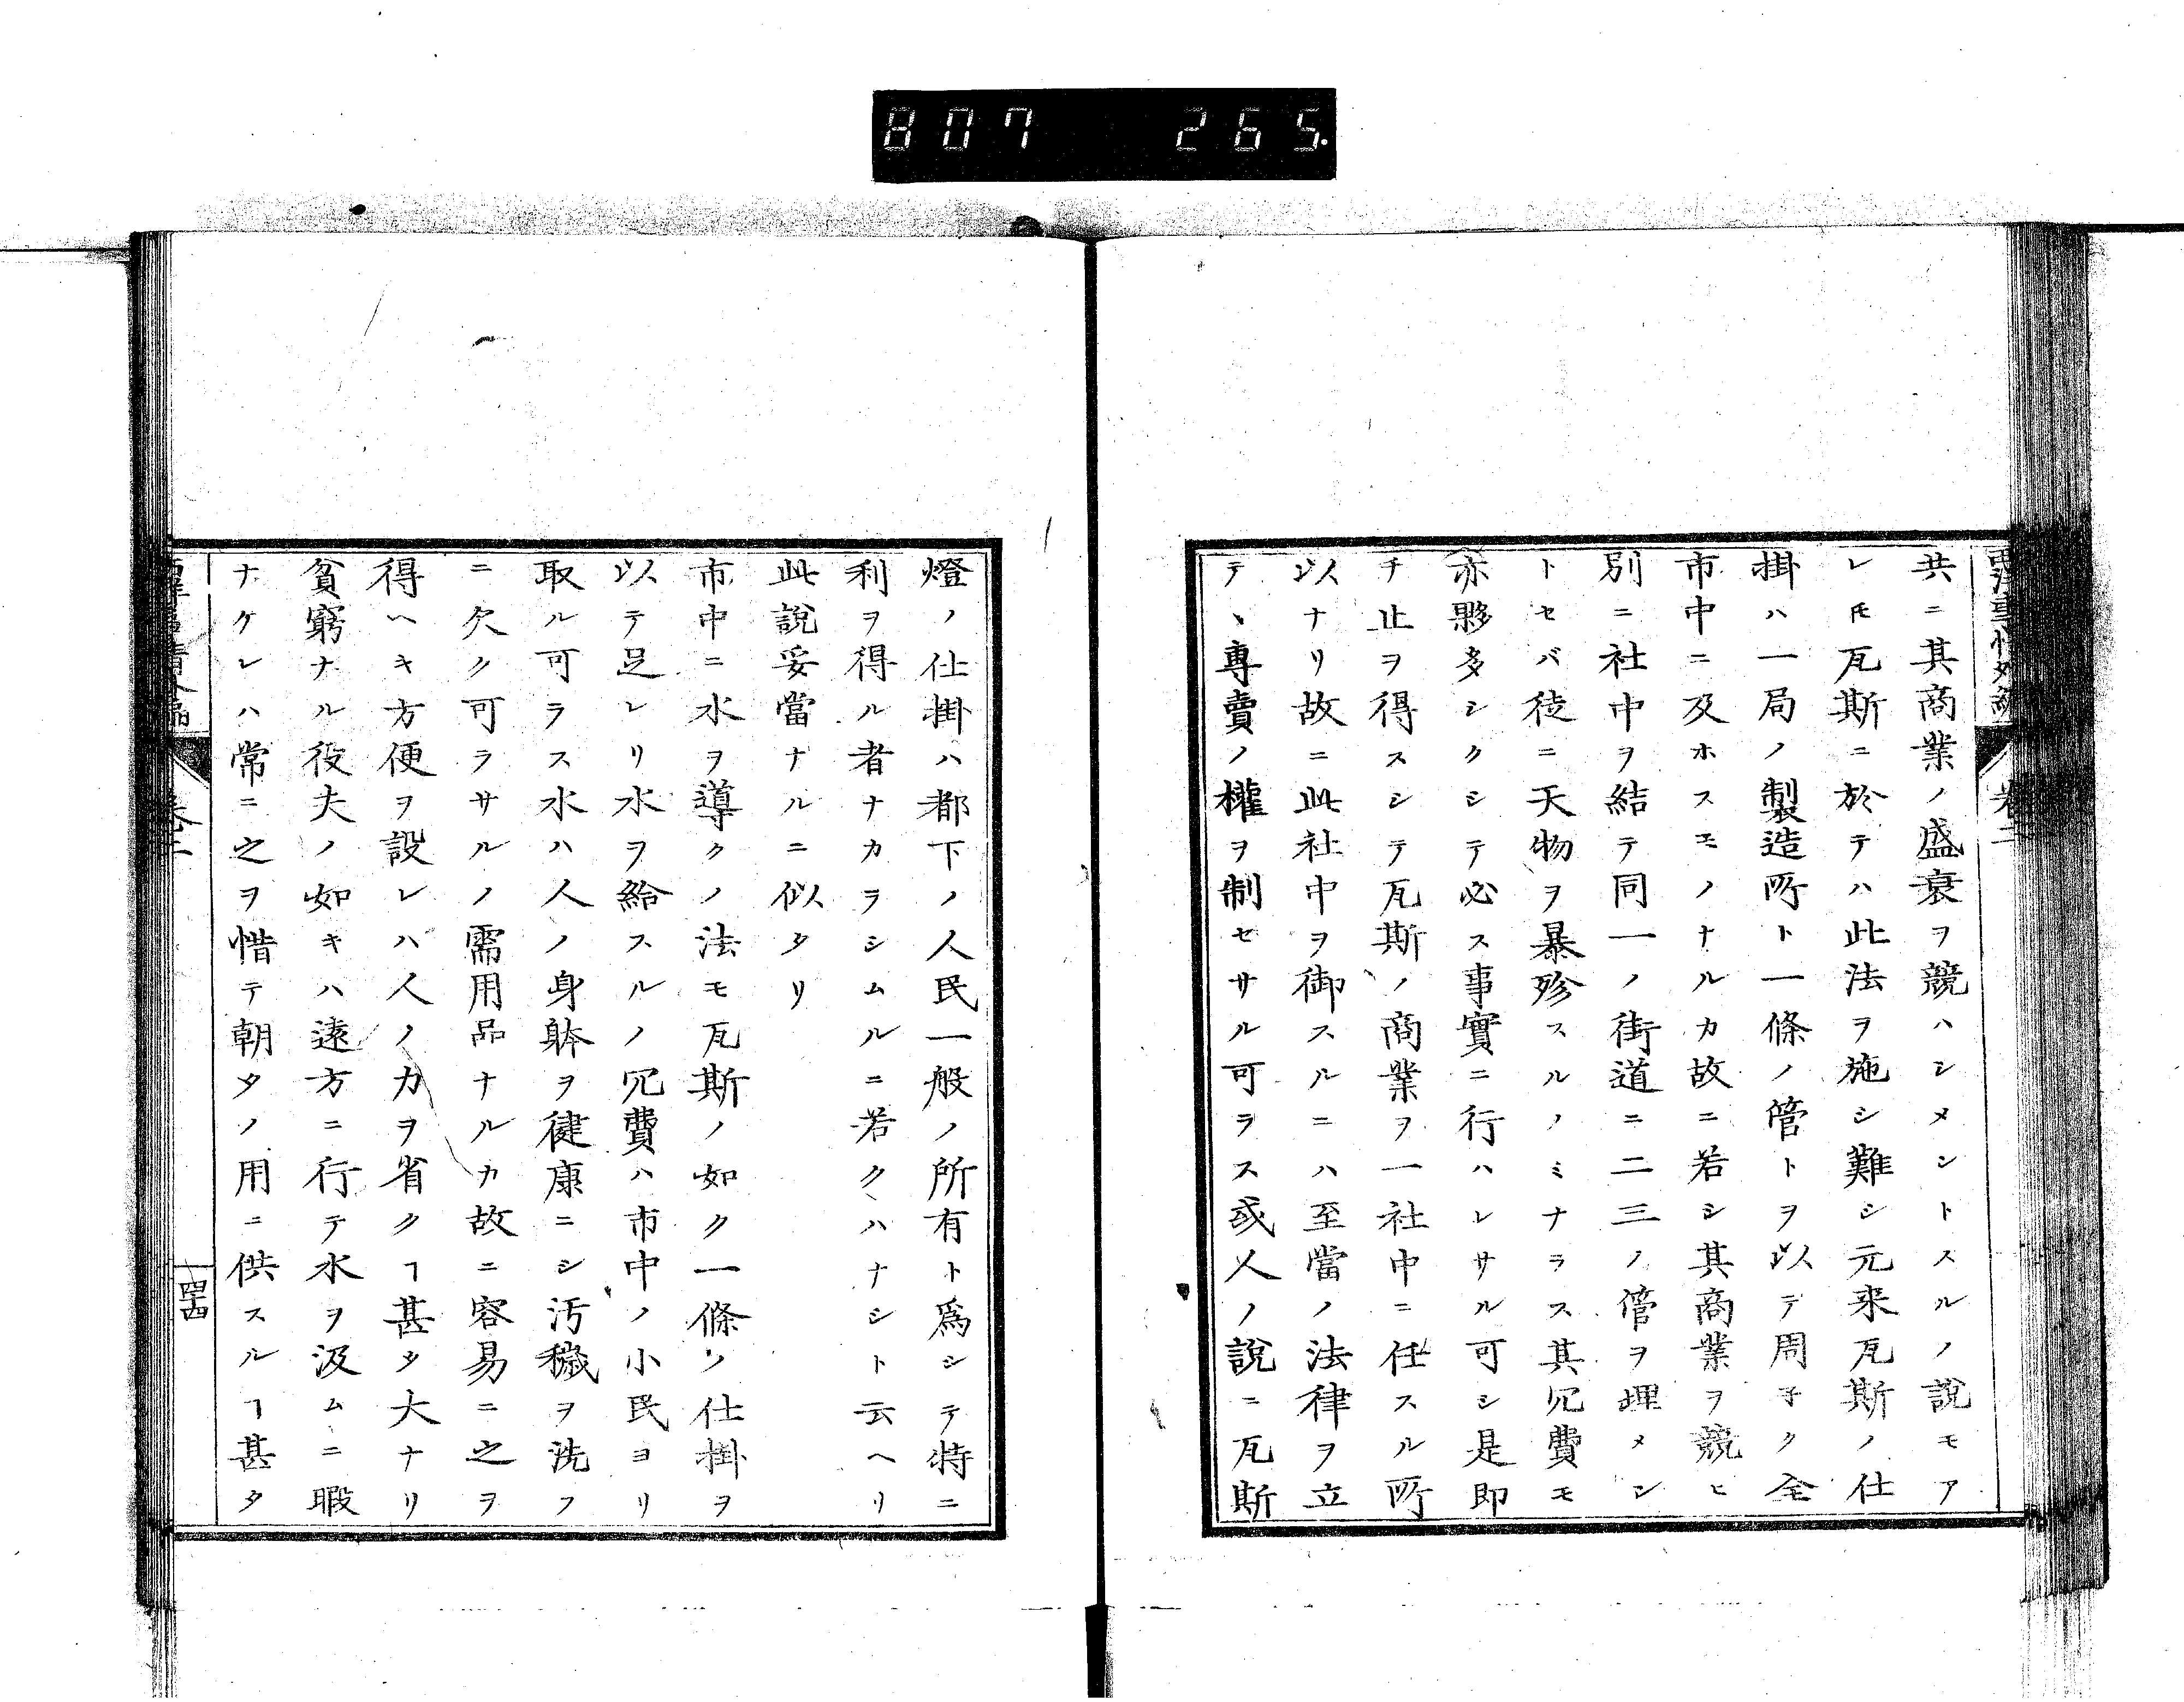 807 265.
西洋事情外編 卷二
共ニ其商業ノ盛衰ヲ競ハシメントスルノ說モア
レ𪜈瓦斯ニ於テハ此法ヲ施シ難シ元来瓦斯ノ仕
掛ハ一局ノ製造所ト一條ノ管トヲ以テ周子ク全
市中ニ及ホスモノナルカ故ニ若シ其商業ヲ競ヒ
別ニ社中ヲ結テ同一ノ街道ニ二三ノ管ヲ埋メン
トセバ徒ニ天物ヲ暴殄スルノミナラス其冗費モ
亦夥多シクシテ必ス事實ニ行ハレサル可シ是即
チ止ヲ得スシテ瓦斯ノ商業ヲ一社中ニ任スル所
以ナリ故ニ此社中ヲ御スルニハ至當ノ法律ヲ立
テヽ專賣ノ權ヲ制セサル可ラス或人ノ說ニ瓦斯
燈ノ仕掛ハ都下ノ人民一般ノ所有ト爲シテ特ニ
利ヲ得ル者ナカラシムルニ若クハナシト云ヘリ
此說妥當ナルニ似タリ
市中ニ水ヲ導クノ法モ瓦斯ノ如ク一條ノ仕掛ヲ
以テ足レリ水ヲ給スルノ冗費ハ市中ノ小民ヨリ
取ル可ラス水ハ人ノ身躰ヲ健康ニシ汚穢ヲ洗フ
ニ欠ク可ラサルノ需用品ナルカ故ニ容易ニ之ヲ
得ヘキ方便ヲ設レハ人ノ力ヲ省クヿ甚タ大ナリ
貧窮ナル役夫ノ如キハ遠方ニ行テ水ヲ汲ムニ暇
ナケレハ常ニ之ヲ惜テ朝夕ノ用ニ供スルヿ甚タ
西洋事情外編 卷二 四十四